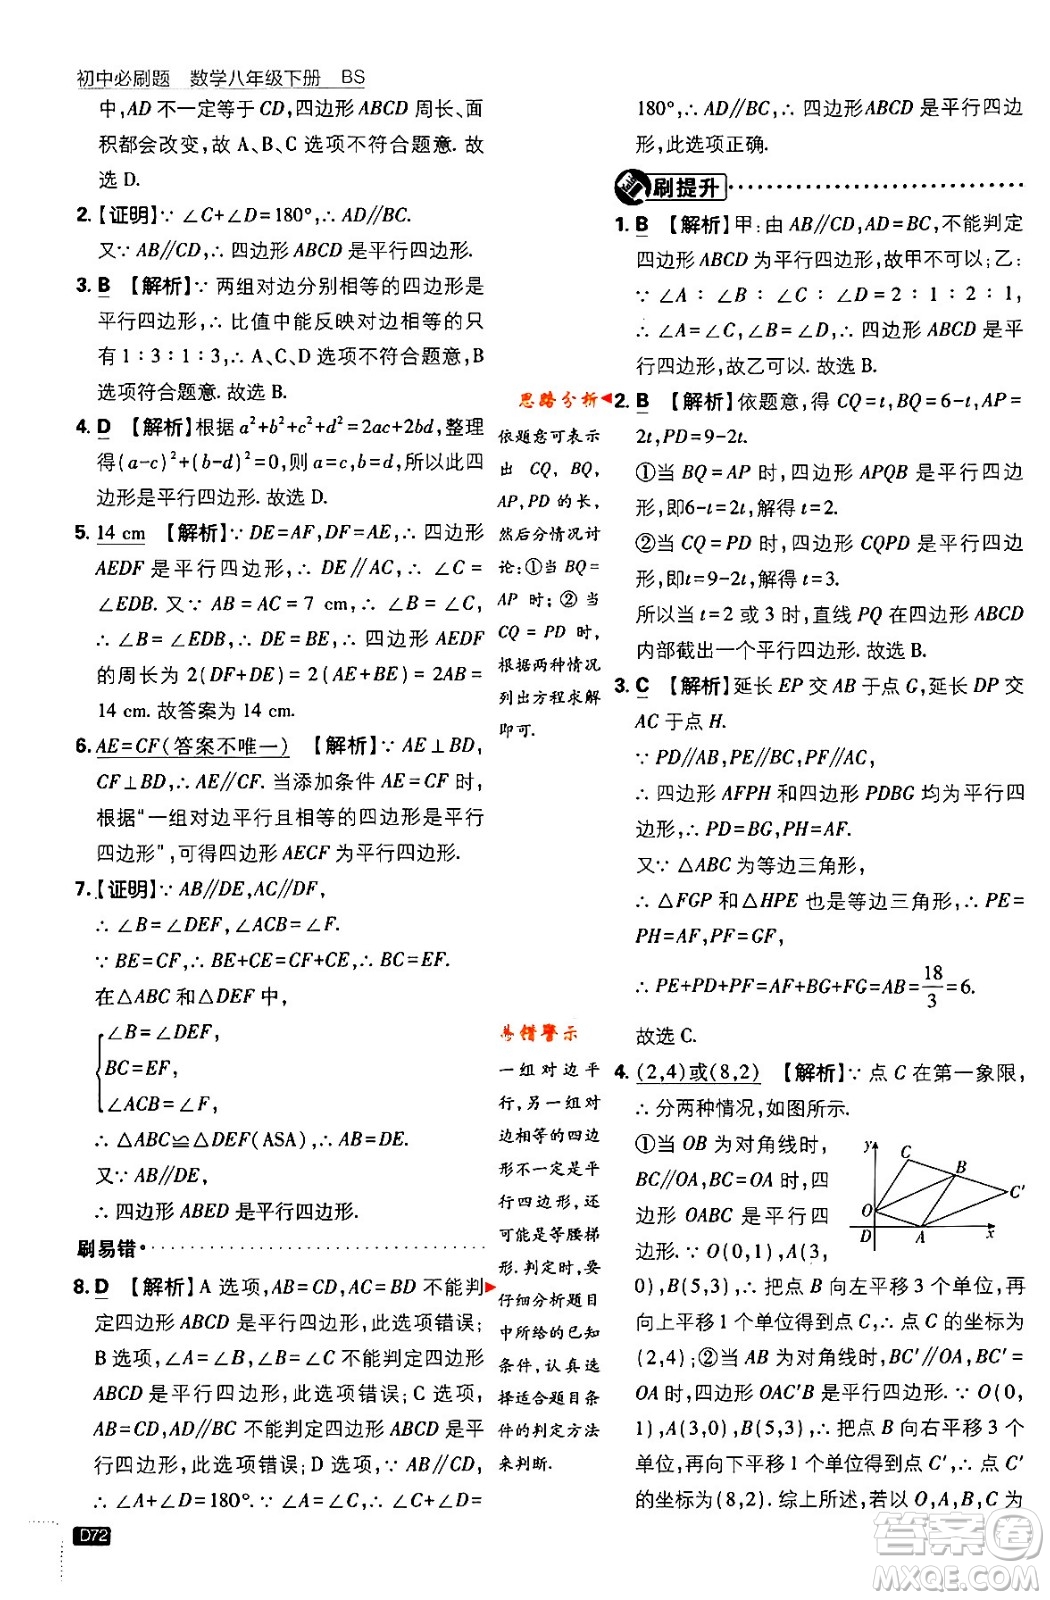 初中必刷题 数学八年级下册 BS
中,AD 不一定等于 CD,四边形 ABCD 周长、面
积都会改变,故 A、B、C 选项不符合题意. 故
选 D.
2.【证明】∵ ∠C+∠D=180°,∴ AD//BC.
又∵ AB//CD,∴ 四边形 ABCD 是平行四边形.
3. B 【解析】∵ 两组对边分别相等的四边形是
平行四边形,∴ 比值中能反映对边相等的只
有 1∶3∶1∶3,∴ A、C、D 选项不符合题意,B
选项符合题意. 故选 B.
4. D 【解析】根据 a²+b²+c²+d²=2ac+2bd,整理
得(a-c)²+(b-d)²=0,则 a=c,b=d,所以此四
边形是平行四边形. 故选 D.
5. 14 cm 【解析】∵ DE=AF,DF=AE,∴ 四边形
AEDF 是平行四边形,∴ DE//AC,∴ ∠C=
∠EDB. 又∵ AB=AC=7 cm,∴ ∠B=∠C,
∴ ∠B=∠EDB,∴ DE=BE,∴ 四边形 AEDF
的周长为 2(DF+DE)=2(AE+BE)=2AB=
14 cm. 故答案为 14 cm.
6. AE=CF(答案不唯一) 【解析】∵ AE⊥BD,
CF⊥BD,∴ AE//CF. 当添加条件 AE=CF 时,
根据“一组对边平行且相等的四边形是平行
四边形”,可得四边形 AECF 为平行四边形.
7.【证明】∵ AB//DE,AC//DF,
∴ ∠B=∠DEF,∠ACB=∠F.
∵ BE=CF,∴ BE+CE=CF+CE,∴ BC=EF.
在△ABC 和△DEF 中,
∠B=∠DEF,
BC=EF,
∠ACB=∠F,
∴ △ABC≌△DEF(ASA),∴ AB=DE.
又∵ AB//DE,
∴ 四边形 ABED 是平行四边形.
刷易错
8. D 【解析】A 选项,AB=CD,AC=BD 不能判
定四边形 ABCD 是平行四边形,此选项错误;
B 选项,∠A=∠B,∠C=∠D 不能判定四边形
ABCD 是平行四边形,此选项错误;C 选项,
AB=CD,AD//BC 不能判定四边形 ABCD 是平
行四边形,此选项错误;D 选项,∵ AB//CD,
∴ ∠A+∠D=180°. ∵ ∠A=∠C,∴ ∠C+∠D=
D72
思路分析
依题意可表示
出 CQ, BQ,
AP,PD 的长,
然后分情况讨
论:①当 BQ=
AP 时;② 当
CQ = PD 时,
根据两种情况
列出方程求解
即可.
易错警示
一组对边平
行,另一组对
边相等的四边
形不一定是平
行四边形,还
可能是等腰梯
形. 判定时,要
仔细分析题目
中所给的已知
条件,认真选
择适合题目条
件的判定方法
来判断.
180°,∴ AD//BC,∴ 四边形 ABCD 是平行四边
形,此选项正确.
刷提升
1. B 【解析】甲:由 AB//CD,AD=BC,不能判定
四边形 ABCD 为平行四边形,故甲不可以;乙:
∵ ∠A∶∠B∶∠C∶∠D=2∶1∶2∶1,
∴ ∠A=∠C,∠B=∠D,∴ 四边形 ABCD 是平
行四边形,故乙可以. 故选 B.
2. B 【解析】依题意,得 CQ=t,BQ=6-t,AP=
2t,PD=9-2t.
①当 BQ=AP 时,四边形 APQB 是平行四边
形,即6-t=2t,解得 t=2.
②当 CQ=PD 时,四边形 CQPD 是平行四边
形,即 t=9-2t,解得 t=3.
所以当 t=2 或 3 时,直线 PQ 在四边形 ABCD
内部截出一个平行四边形. 故选 B.
3. C 【解析】延长 EP 交 AB 于点 G,延长 DP 交
AC 于点 H.
∵ PD//AB,PE//BC,PF//AC,
∴ 四边形 AFPH 和四边形 PDBG 均为平行四
边形,∴ PD=BG,PH=AF.
又∵ △ABC 为等边三角形,
∴ △FGP 和△HPE 也是等边三角形,∴ PE=
PH=AF,PF=GF,
∴ PE+PD+PF=AF+BG+FG=AB=18/3=6.
故选 C.
4. (2,4)或(8,2) 【解析】∵ 点 C 在第一象限,
∴ 分两种情况,如图所示.
①当 OB 为对角线时,
BC//OA,BC=OA,四
边形 OABC 是平行四
边形. ∵ O(0,1),A(3,
y C B C′ O D A x
0),B(5,3),∴ 把点 B 向左平移 3 个单位,再
向上平移 1 个单位得到点 C,∴ 点 C 的坐标为
(2,4);②当 AB 为对角线时,BC′//OA,BC′=
OA 时,四边形 OAC′B 是平行四边形. ∵ O(0,
1),A(3,0),B(5,3),∴ 把点 B 向右平移 3 个
单位,再向下平移 1 个单位得到点 C′,∴ 点 C′
的坐标为(8,2). 综上所述,若以 O,A,B,C 为
答案卷
MXQE.COM